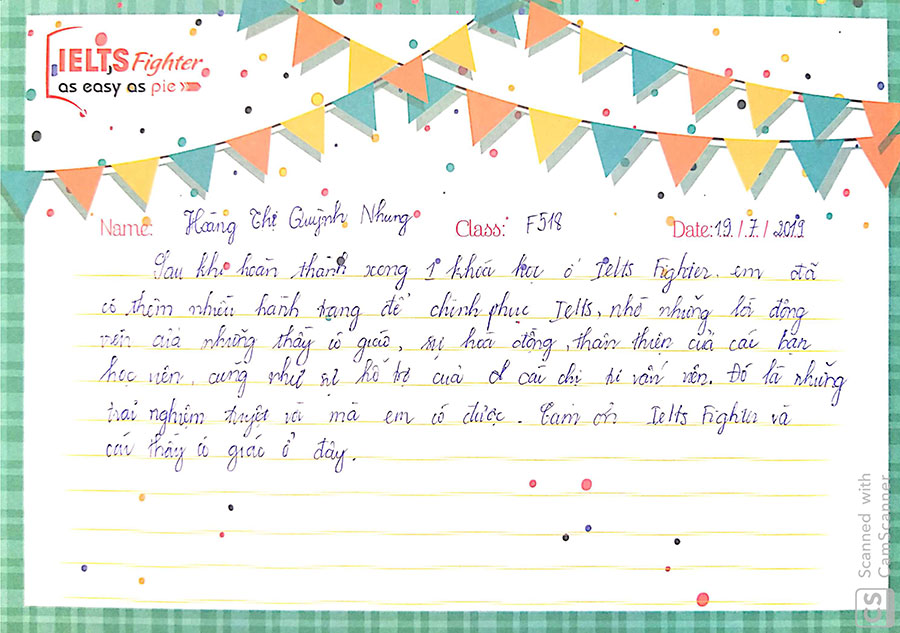 IELTS Fighter
as easy as pie
Name: Hoàng Thị Quỳnh Nhung Class: F518 Date: 19./.7./.2019
Sau khi hoàn thành xong 1 khoá học ở Ielts Fighter. em đã
có thêm nhiều hành trang để chinh phục Ielts, nhờ những lời động
viên của những thầy cô giáo, sự hoà đồng, thân thiện của các bạn
học viên, cũng như sự hỗ trợ của các chị tư vấn viên. Đó là những
trải nghiệm tuyệt vời mà em có được. Cảm ơn Ielts Fighter và
các thầy cô giáo ở đây.
CS Scanned with
CamScanner